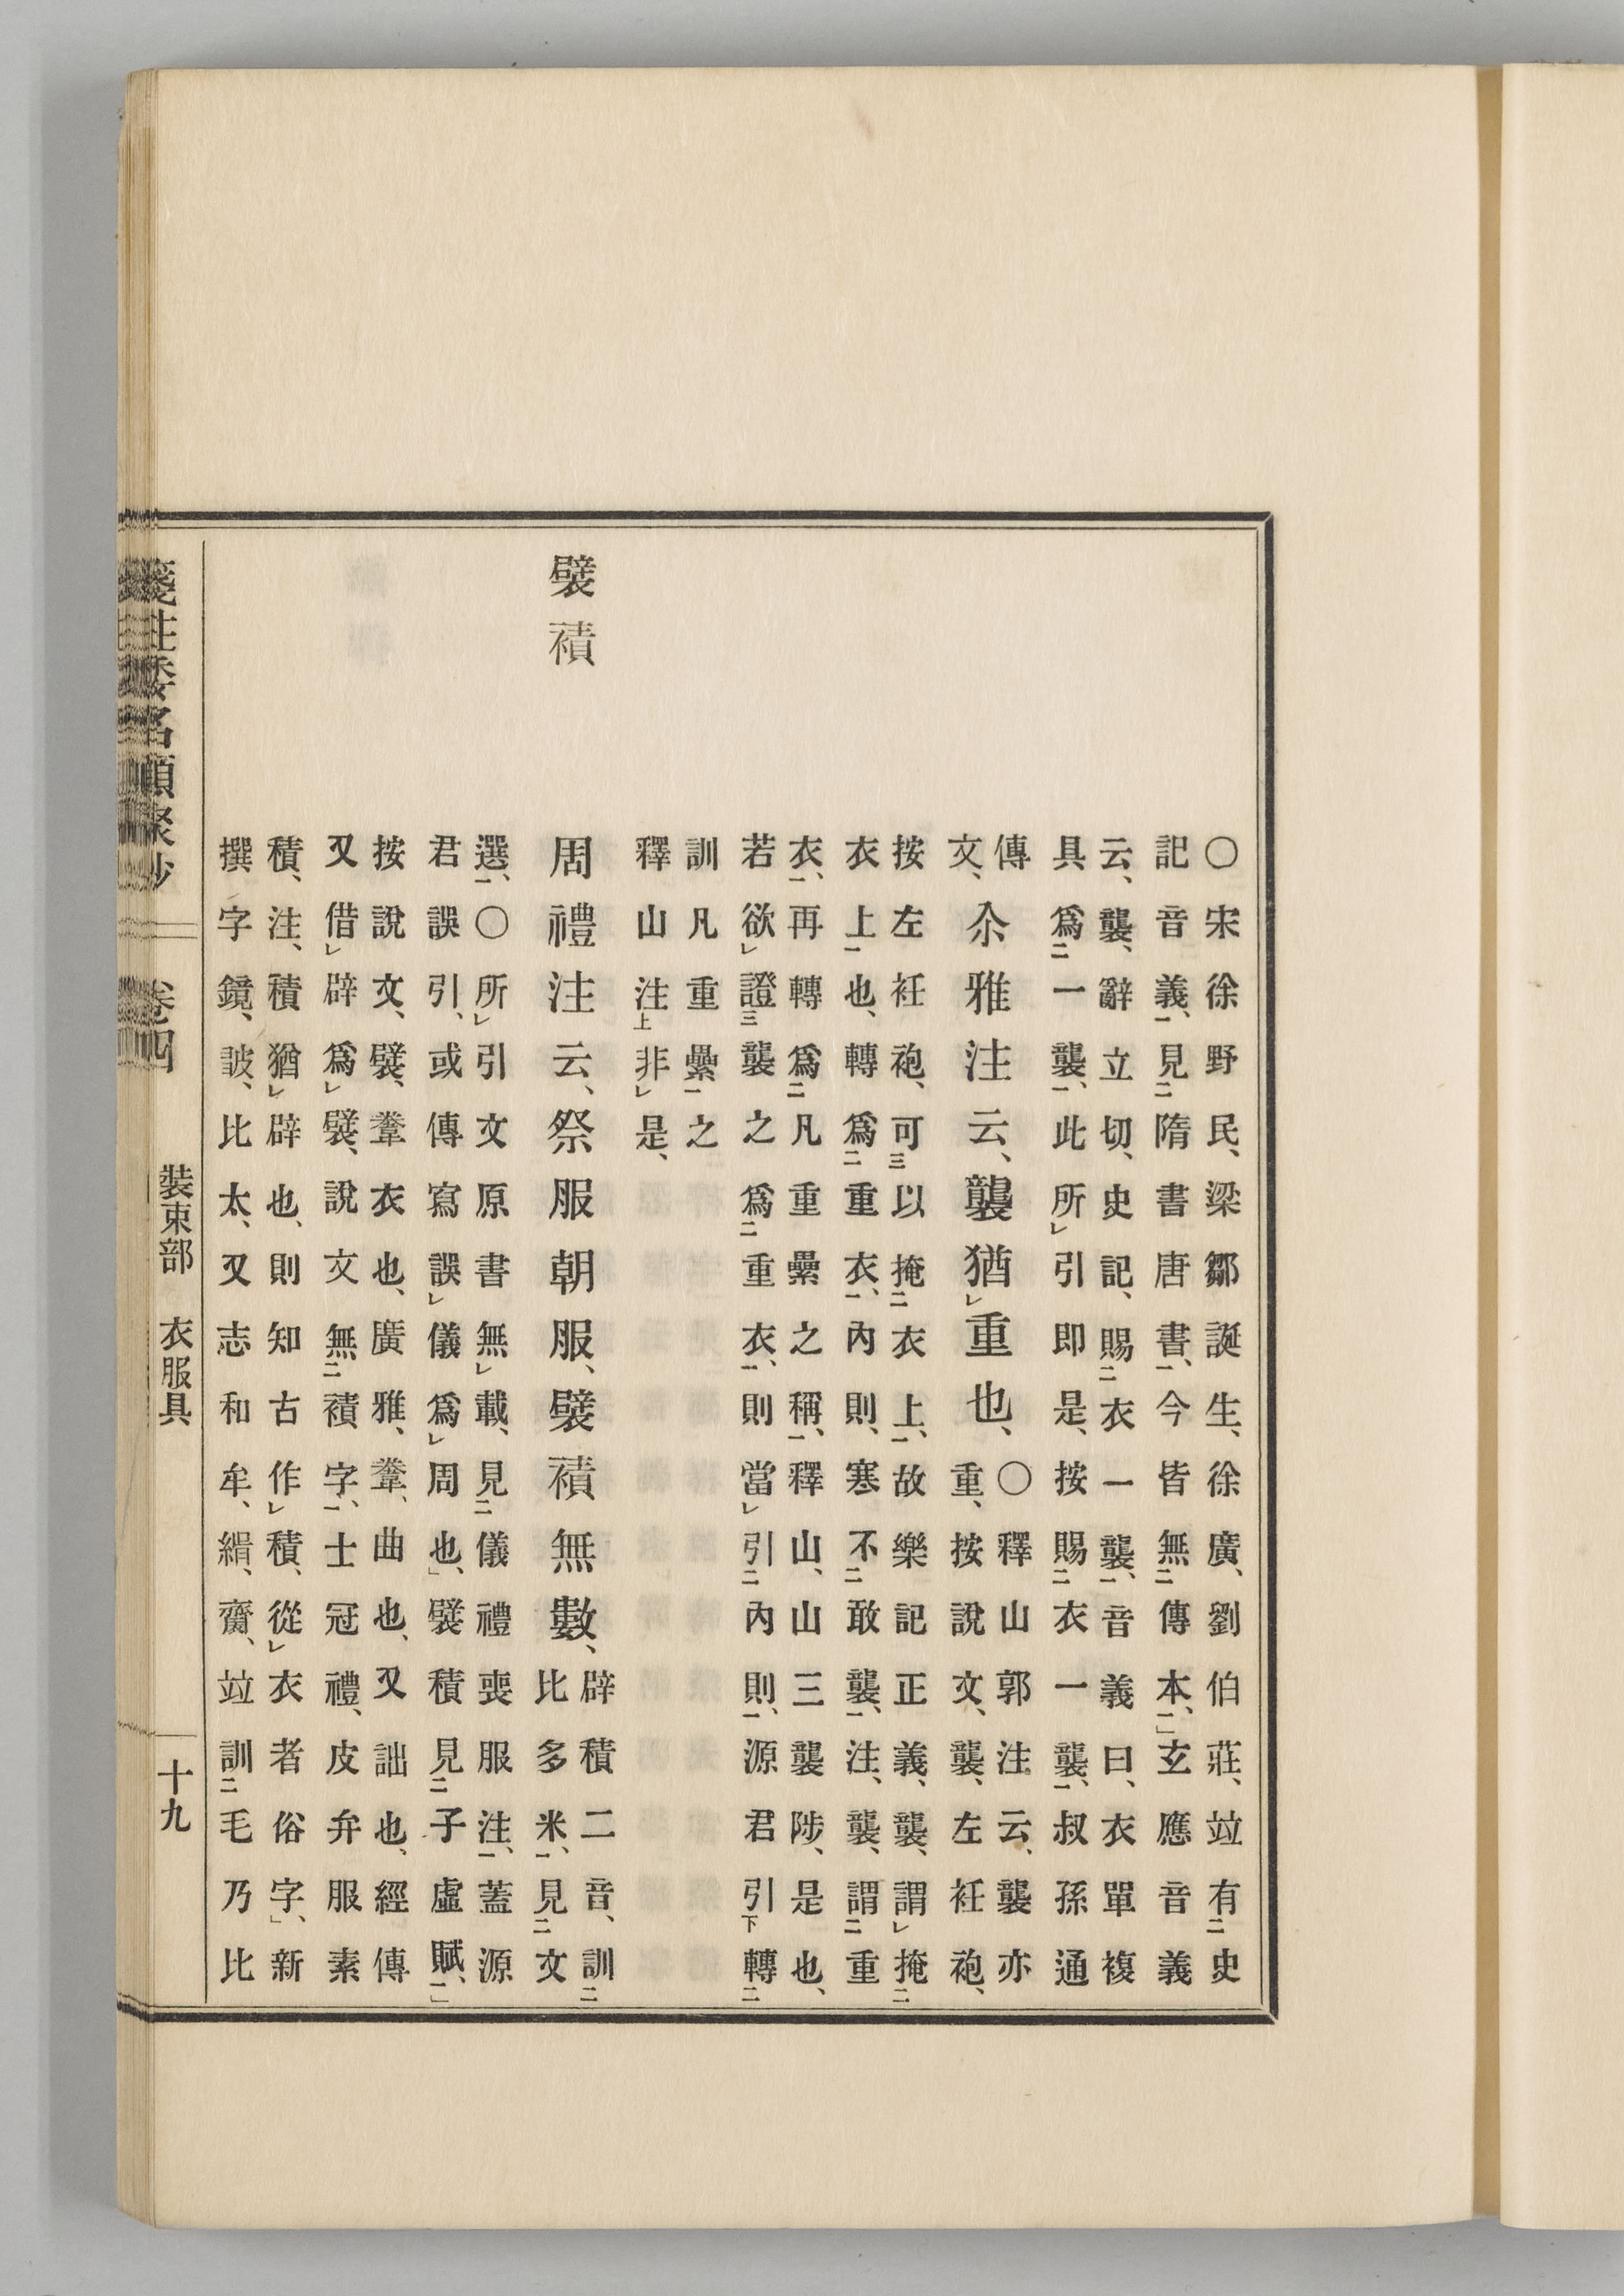 〇宋徐野民、梁鄒誕生、徐廣、劉伯莊、竝有二史
記音義、一見二隋書唐書、一今皆無二傳本、一」玄應音義
云、襲、辭立切、史記、賜二衣一襲、一音義曰、衣單複
具爲二一襲、一此所レ引即是、按賜二衣一襲、一叔孫通
傳
文、
尒雅注云、襲猶レ重也、
〇釋山郭注云、襲亦
重、按說文、襲、左衽袍、
按左衽袍、可三以掩二衣上、一故樂記正義、襲、謂レ掩二
衣上一也、轉爲二重衣、一內則、寒不二敢襲、一注、襲、謂二重
衣、一再轉爲二凡重纍之稱、一釋山、山三襲陟、是也、
若欲レ證三襲之爲二重衣、一則當レ引二內則、一源君引下轉二
訓凡重纍一之
釋山注上非レ是、
襞襀
周禮注云、祭服朝服、襞襀無數、
辟積二音、訓二
比多米、一見二文
選、一〇所レ引文原書無レ載、見二儀禮喪服注、一蓋源
君誤引、或傳寫誤レ儀爲レ周也、」襞積見二子虛賦、一」
按說文、襞、韏衣也、廣雅、韏、曲也、又詘也、經傳
又借レ辟爲レ襞、說文無二襀字、一士冠禮、皮弁服素
積、注、積猶レ辟也、則知古作レ積、從レ衣者俗字、」新
撰字鏡、詖、比太、又志和牟、緝、齌、竝訓二毛乃比
箋注倭名類聚抄 卷四 裝束部 衣服具 十九